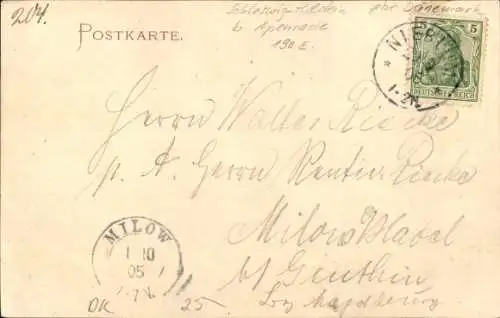 204.
Schleswig-Holstein
b. Apenrade
190
POSTKARTE.
5
DEUTSCHES REICH
Herrn Walter Riecke
p. A. Herrn Rentier Riecke
Milow Havel
b/ Genthin
Bez Magdeburg
MILOW
1 10
05
DK 25.